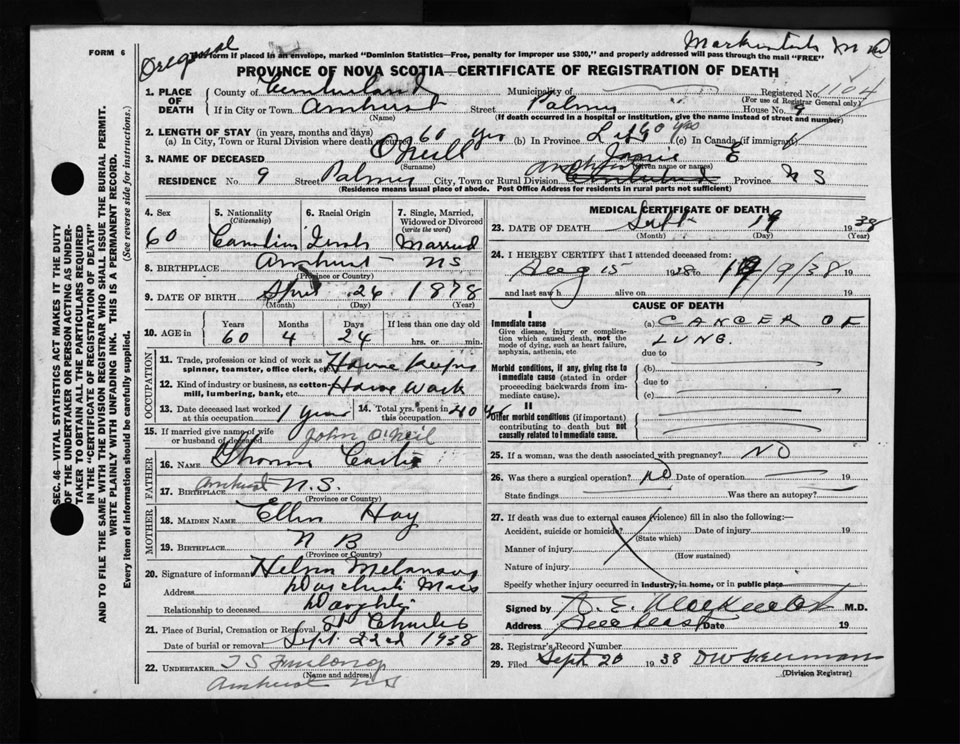 FORM 6
Original
form if placed in an envelope, marked "Dominion Statistics—Free, penalty for improper use $300," and properly addressed will pass through the mail "FREE"
PROVINCE OF NOVA SCOTIA—CERTIFICATE OF REGISTRATION OF DEATH
SEC. 46—VITAL STATISTICS ACT MAKES IT THE DUTY
OF THE UNDERTAKER OR PERSON ACTING AS UNDER-
TAKER TO OBTAIN ALL THE PARTICULARS REQUIRED
IN THE "CERTIFICATE OF REGISTRATION OF DEATH"
AND TO FILE THE SAME WITH THE DIVISION REGISTRAR WHO SHALL ISSUE THE BURIAL PERMIT.
WRITE PLAINLY WITH UNFADING INK. THIS IS A PERMANENT RECORD.
Every item of information should be carefully supplied. (See reverse side for instructions.)
1. PLACE OF DEATH County of Cumberland Municipality of Registered No. 1104
(For use of Registrar General only)
If in City or Town Amherst Street Palmer House No. 9
(Name) (If death occurred in a hospital or institution, give the name instead of street and number)
2. LENGTH OF STAY (in years, months and days)
(a) In City, Town or Rural Division where death occurred 60 yrs (b) In Province (c) In Canada (if immigrant)
3. NAME OF DECEASED O'Neill E
(Surname) (Given name or names)
RESIDENCE No. 9 Street Palmer City, Town or Rural Division Amherst Province N S
(Residence means usual place of abode. Post Office Address for residents in rural parts not sufficient)
4. Sex 5. Nationality (Citizenship) 6. Racial Origin 7. Single, Married, Widowed or Divorced (write the word)
60 Canadian Irish Married
8. BIRTHPLACE Amherst NS
(Province or Country)
9. DATE OF BIRTH April 26 1878
(Month) (Day) (Year)
10. AGE in Years Months Days If less than one day old
60 4 24 hrs. or min.
OCCUPATION
11. Trade, profession or kind of work as spinner, teamster, office clerk, etc. House Keeper
12. Kind of industry or business, as cotton mill, lumbering, bank, etc. House Work
13. Date deceased last worked at this occupation 1 year 14. Total yrs. spent in this occupation 40
15. If married give name of wife or husband of deceased John O'Neil
FATHER
16. NAME Thomas
17. BIRTHPLACE Amherst N.S.
(Province or Country)
MOTHER
18. MAIDEN NAME Ellen Hay
19. BIRTHPLACE N B
(Province or Country)
20. Signature of informant Helen
Address Mass
Relationship to deceased Daughter
21. Place of Burial, Cremation or Removal St Charles
Date of burial or removal Sept. 22nd 1938
22. UNDERTAKER T S Furlong
(Name and address)
Amherst NS
MEDICAL CERTIFICATE OF DEATH
23. DATE OF DEATH Sept 19 1938
(Month) (Day) (Year)
24. I HEREBY CERTIFY that I attended deceased from:
Aug 15 1938 to 19/9/38 19
and last saw h alive on 19
CAUSE OF DEATH
I
Immediate cause
Give disease, injury or complication which caused death, not the mode of dying, such as heart failure, asphyxia, asthenia, etc
(a) CANCER OF
LUNG.
due to
Morbid conditions, if any, giving rise to immediate cause (stated in order proceeding backwards from immediate cause).
(b)
due to
(c)
II
Other morbid conditions (if important) contributing to death but not causally related to immediate cause.
25. If a woman, was the death associated with pregnancy? NO
26. Was there a surgical operation? NO Date of operation 19
State findings Was there an autopsy?
27. If death was due to external causes (violence) fill in also the following:—
Accident, suicide or homicide? Date of injury 19
(State which)
Manner of injury
(How sustained)
Nature of injury
Specify whether injury occurred in industry, in home, or in public place
Signed by M.D.
Address Date 19
28. Registrar's Record Number
29. Filed Sept 20 1938
(Division Registrar)